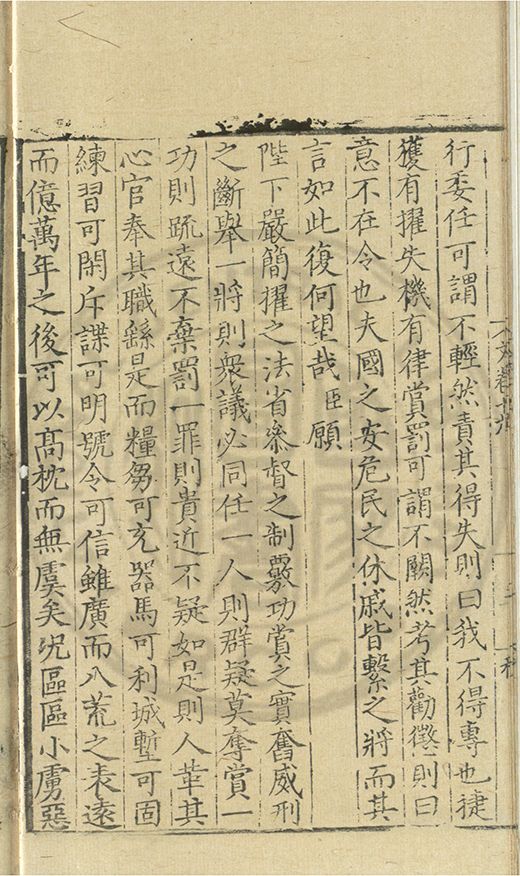 行委任可謂不輕然責其得失則曰我不得專也捷
獲有擢失機有律賞罰可謂不闕然考其勸懲則曰
意不在令也夫國之安危民之休戚皆繫之將而其
言如此復何望哉臣願
陛下嚴簡擢之法省叅督之制覈功賞之實奮威刑
之斷舉一將則衆議必同任一人則群疑莫奪賞一
功則䟽遠不棄罰一罪則貴近不疑如是則人革其
心官奉其職繇是而糧芻可充器馬可利城塹可固
練習可閑斥諜可明號令可信雖廣而八荒之表遠
而億萬年之後可以髙枕而無虞矣况區區小虜惡